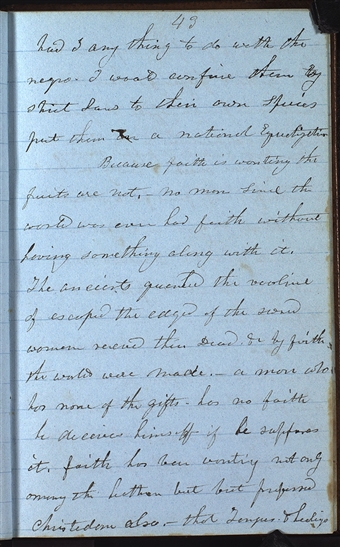 43
had I any thing to do with the
negro - I would confine them by
strict Law to their own Species
put them on a national Equalization
Because faith is wanting the
fruits are not. no man since the
world was ever had faith without
having something along with it.
The ancients quenched the violence
of escaped the edge of the sword
women received their Dead &c by faith
the worlds were made. - a man who
has none of the gifts - has no faith
he deceives himself if he supposes
it. faith has been wanting not only
among the heathen but but professed
Christendom also. - that Tongues & healings